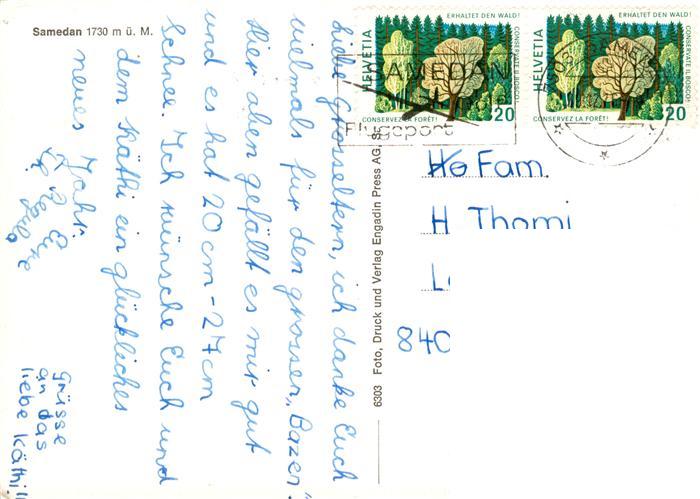 Samedan 1730 m ü. M.
Liebe Grosseltern, ich danke Euch
vielmals für den grossen „Bazen“.
Hier oben gefällt es mir gut
und es hat 20 cm - 27 cm
Schnee. Ich wünsche Euch und
dem Käthi ein glückliches
neues Jahr.
Grüsse
an das
liebe Käthi!!
6303 Foto, Druck und Verlag Engadin Press AG,
ERHALTET DEN WALD!
HELVETIA
CONSERVATE IL BOSCO!
CONSERVEZ LA FORÊT!
20
ERHALTET DEN WALD!
HELVETIA
CONSERVATE IL BOSCO!
CONSERVEZ LA FORÊT!
20
SAMEDAN
Flugsport
Fam.
H Thomi
840